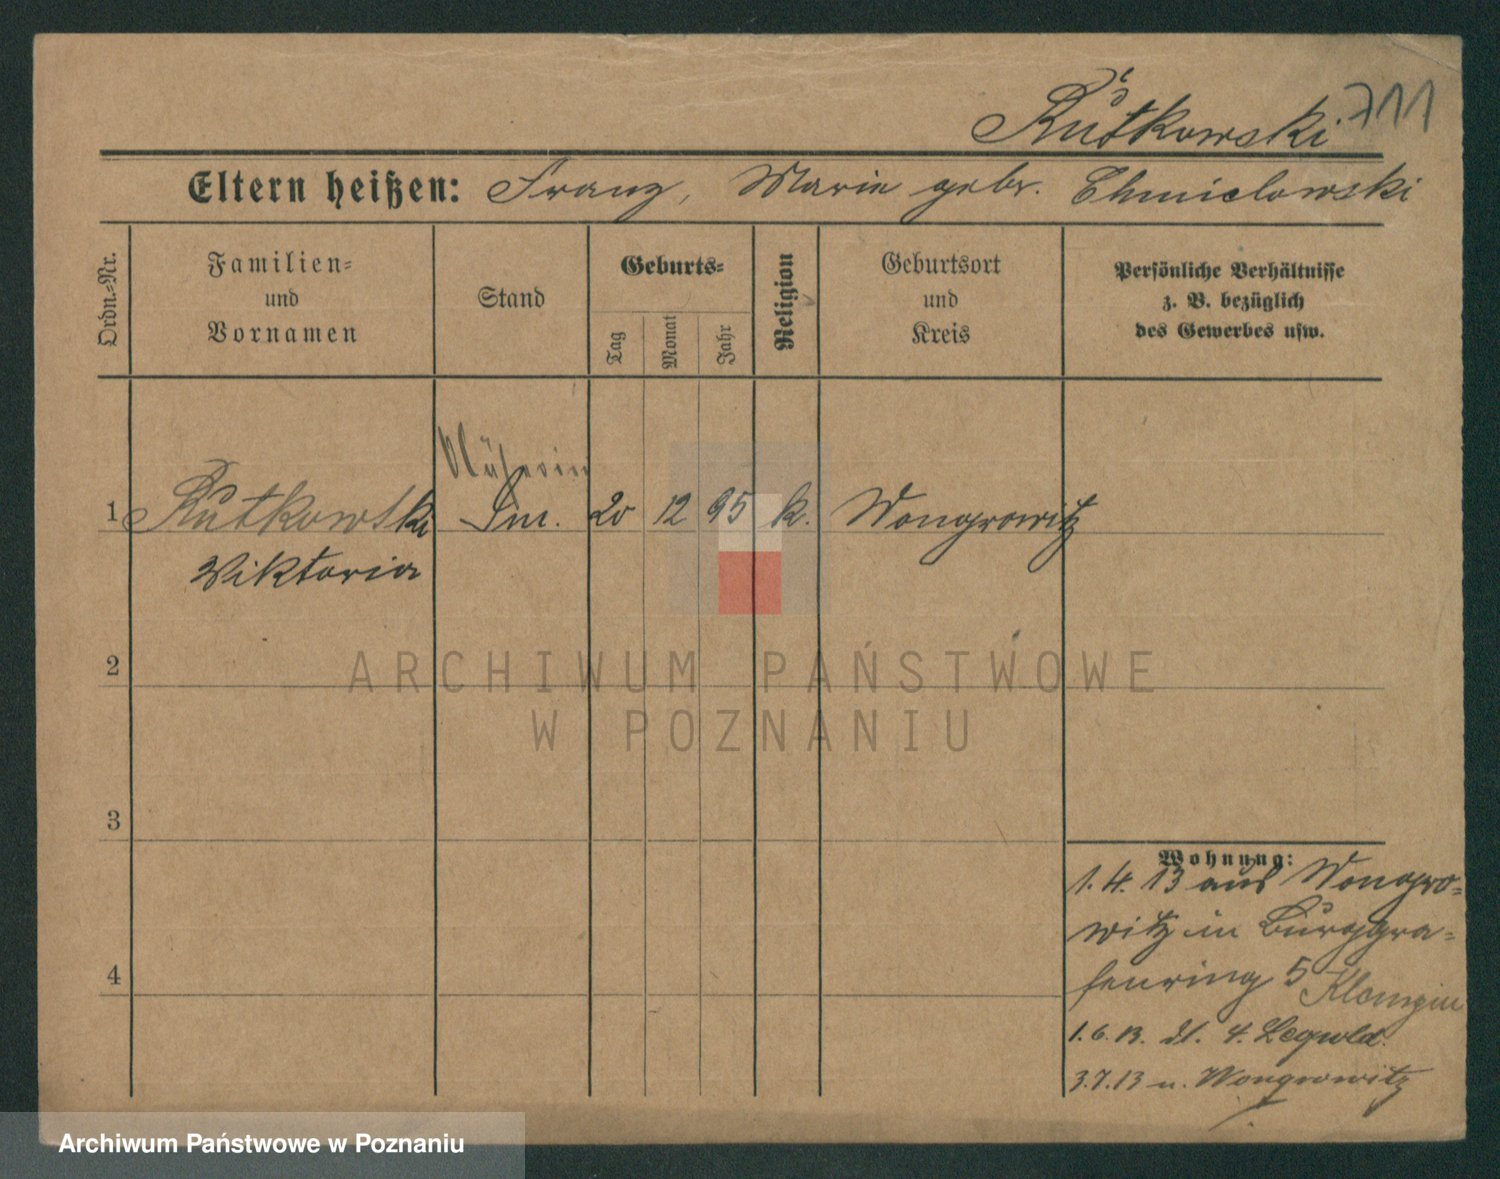 Rutkowski 711
Eltern heißen: Franz, Marie gebr. Chmielowski
Ordn.-Nr.
Familien-
und
Vornamen
Stand
Geburts-
Tag
Monat
Jahr
Religion
Geburtsort
und
Kreis
Persönliche Verhältnisse
z. B. bezüglich
des Gewerbes usw.
Näherin
1 Rutkowski 20 12 95 k. Wongrowitz
Viktoria
2
ARCHIWUM PAŃSTWOWE
W POZNANIU
3
Wohnung:
1. 4. 13 aus Wongro-
witz in Burggra-
fenring 5
1. 6. 13. dt. 4.
3.7.13 n. Wongrowitz
4
Archiwum Państwowe w Poznaniu